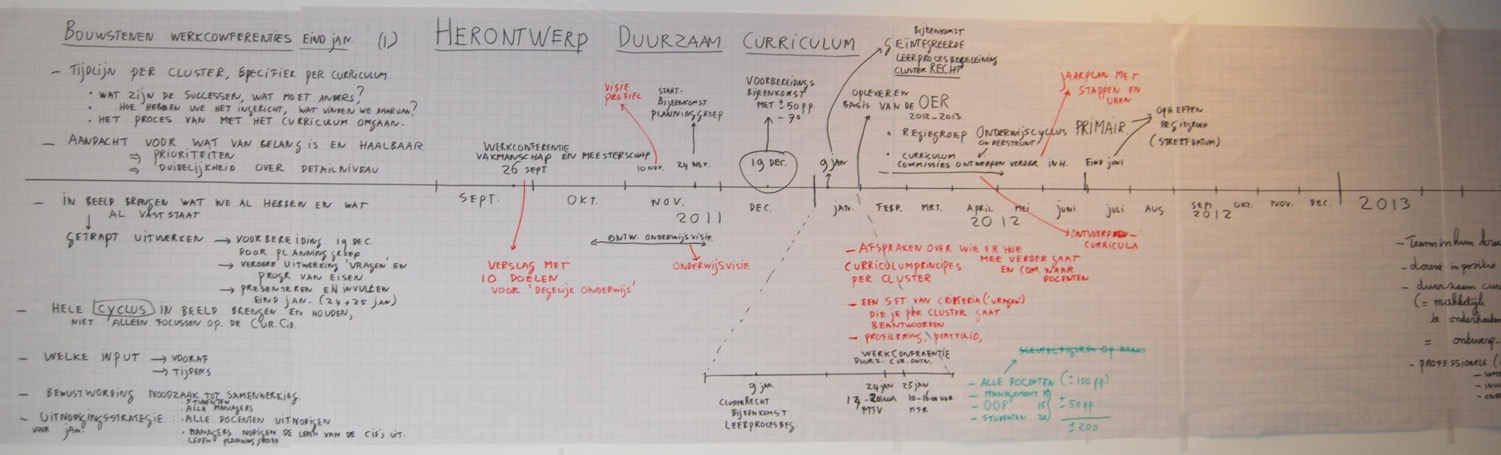 BOUWSTENEN WERKCONFERENTIES EIND JAN. (1)
HERONTWERP DUURZAAM CURRICULUM
- TIJDLIJN PER CLUSTER, SPECIFIEK PER CURRICULUM
• WAT ZIJN DE SUCCESSEN, WAT MOET ANDERS?
• HOE HEBBEN WE HET INGERICHT, WAT VINDEN WE DAARVAN?
• HET PROCES VAN MET HET CURRICULUM OMGAAN.
- AANDACHT VOOR WAT VAN BELANG IS EN HAALBAAR
⇒ PRIORITEITEN
⇒ DUIDELIJKHEID OVER DETAILNIVEAU
- IN BEELD BRENGEN WAT WE AL HEBBEN EN WAT
AL VAST STAAT
GETRAPT UITWERKEN → VOORBEREIDING 19 DEC.
DOOR PLANNINGGROEP
→ VERDERE UITWERKING 'VRAGEN' EN
PROGR VAN EISEN
→ PRESENTEREN EN INVULLEN
EIND JAN. (24 + 25 JAN)
- HELE CYCLUS IN BEELD BRENGEN EN HOUDEN,
NIET ALLEEN FOCUSSEN OP DE CUR.CIE.
- WELKE INPUT → VOORAF
→ TIJDENS
- BEWUSTWORDING NOODZAAK TOT SAMENWERKING
• STUDENTEN
• ALLE MANAGERS
- UITNODIGINGSSTRATEGIE : • ALLE DOCENTEN UITNODIGEN
VOOR JAN.
• MANAGERS NODIGEN DE LEDEN VAN DE CIE'S UIT.
LEDEN PLANNINGGROEP
WERKCONFERENTIE
VAKMANSCHAP EN MEESTERSCHAP
26 SEPT
VISIE
PROFIEL
10 NOV.
START-
BIJEENKOMST
PLANNINGGROEP
24 NOV.
VOORBEREIDINGS
BIJEENKOMST
MET ± 50 pp.
- 70
19 DEC.
9 JAN
BIJEENKOMST
GEÏNTEGREERDE
LEERPROCESBEGELEIDING
CLUSTER RECHT
OPLEVEREN
BASIS VAN DE OER
2012-2013
• REGIEGROEP ONDERWIJSCYCLUS PRIMAIR
ONDERSTEUNT
• CURRICULUM
COMMISSIES ONTWERPEN VERDER INH.
JAARPLAN MET
STAPPEN EN
UREN
EIND JUNI
OPHEFFEN
REGIEGROEP
(STREEFDATUM)
SEPT. OKT. NOV. DEC. JAN. FEBR. MRT. APRIL MEI JUNI JULI AUG SEPT OKT. NOV. DEC.
2011 2012 2012 2013
ONTW. ONDERWIJSVISIE
ONDERWIJSVISIE
VERSLAG MET
10 DOELEN
VOOR 'DEGELIJK ONDERWIJS'
ONTWERP
CURRICULA
- AFSPRAKEN OVER WIE ER HOE
MEE VERDER GAAT
CURRICULUMPRINCIPES
EN COM. NAAR
PER CLUSTER
DOCENTEN
- EEN SET VAN CRITERIA ('VRAGEN')
DIE JE PER CLUSTER GAAT
BEANTWOORDEN
- PROFILERING \ PORTFOLIO,
WERKCONFERENTIE
DUURZ. CUR. ONTW.
9 JAN.
CLUSTER RECHT
BIJEENKOMST
LEERPROCESBEG.
24 JAN 25 JAN
10-16.00 UUR
- ALLE DOCENTEN (± 150 pp)
- MANAGEMENT 15
- OOP 15 ± 50 pp
- STUDENTEN 20
± 200
- Teams in hun
- docent in positie
- duurzaam
(= makkelijk
te onderhouden
= ontwerp-
- PROFESSIONELE